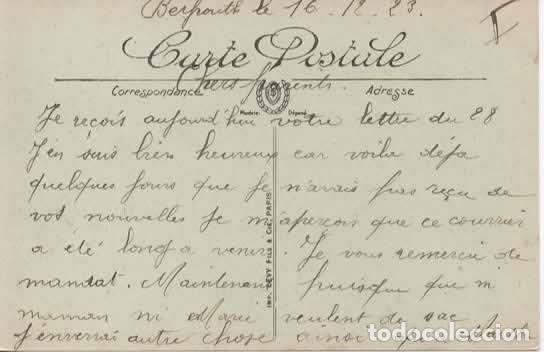 Beyrouth le 16.12.23. I
Carte Postale
Chers parents.
Correspondance Adresse
Modèle Déposé
Je reçois aujourd'hui votre lettre du 28
J'en suis bien heureux car voila déja
quelques jours que je n'avais pas reçu de
vos nouvelles je m'aperçois que ce courrier
a été long a venir. Je vous remercie de
mandat. Maintenant puisque que ni
maman ni Marie veulent de sac
j'enverrai autre chose ainsi
IMP. LEVY FILS & CIE, PARIS
todocoleccion